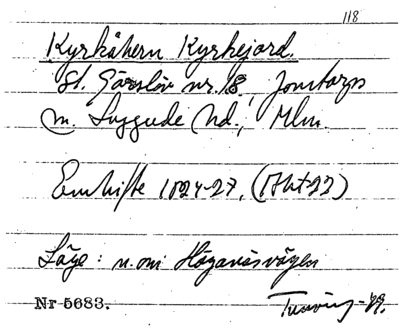 118
Kyrkåkern Kyrkejord.
St. Görslöv nr. 18, Jonstorps
m. Luggude hd., Mlm.
Enskifte 1824-27. (Akt 22)
Läge: n. om Höganäsvägen
Nr 5683. Tuneving -49.